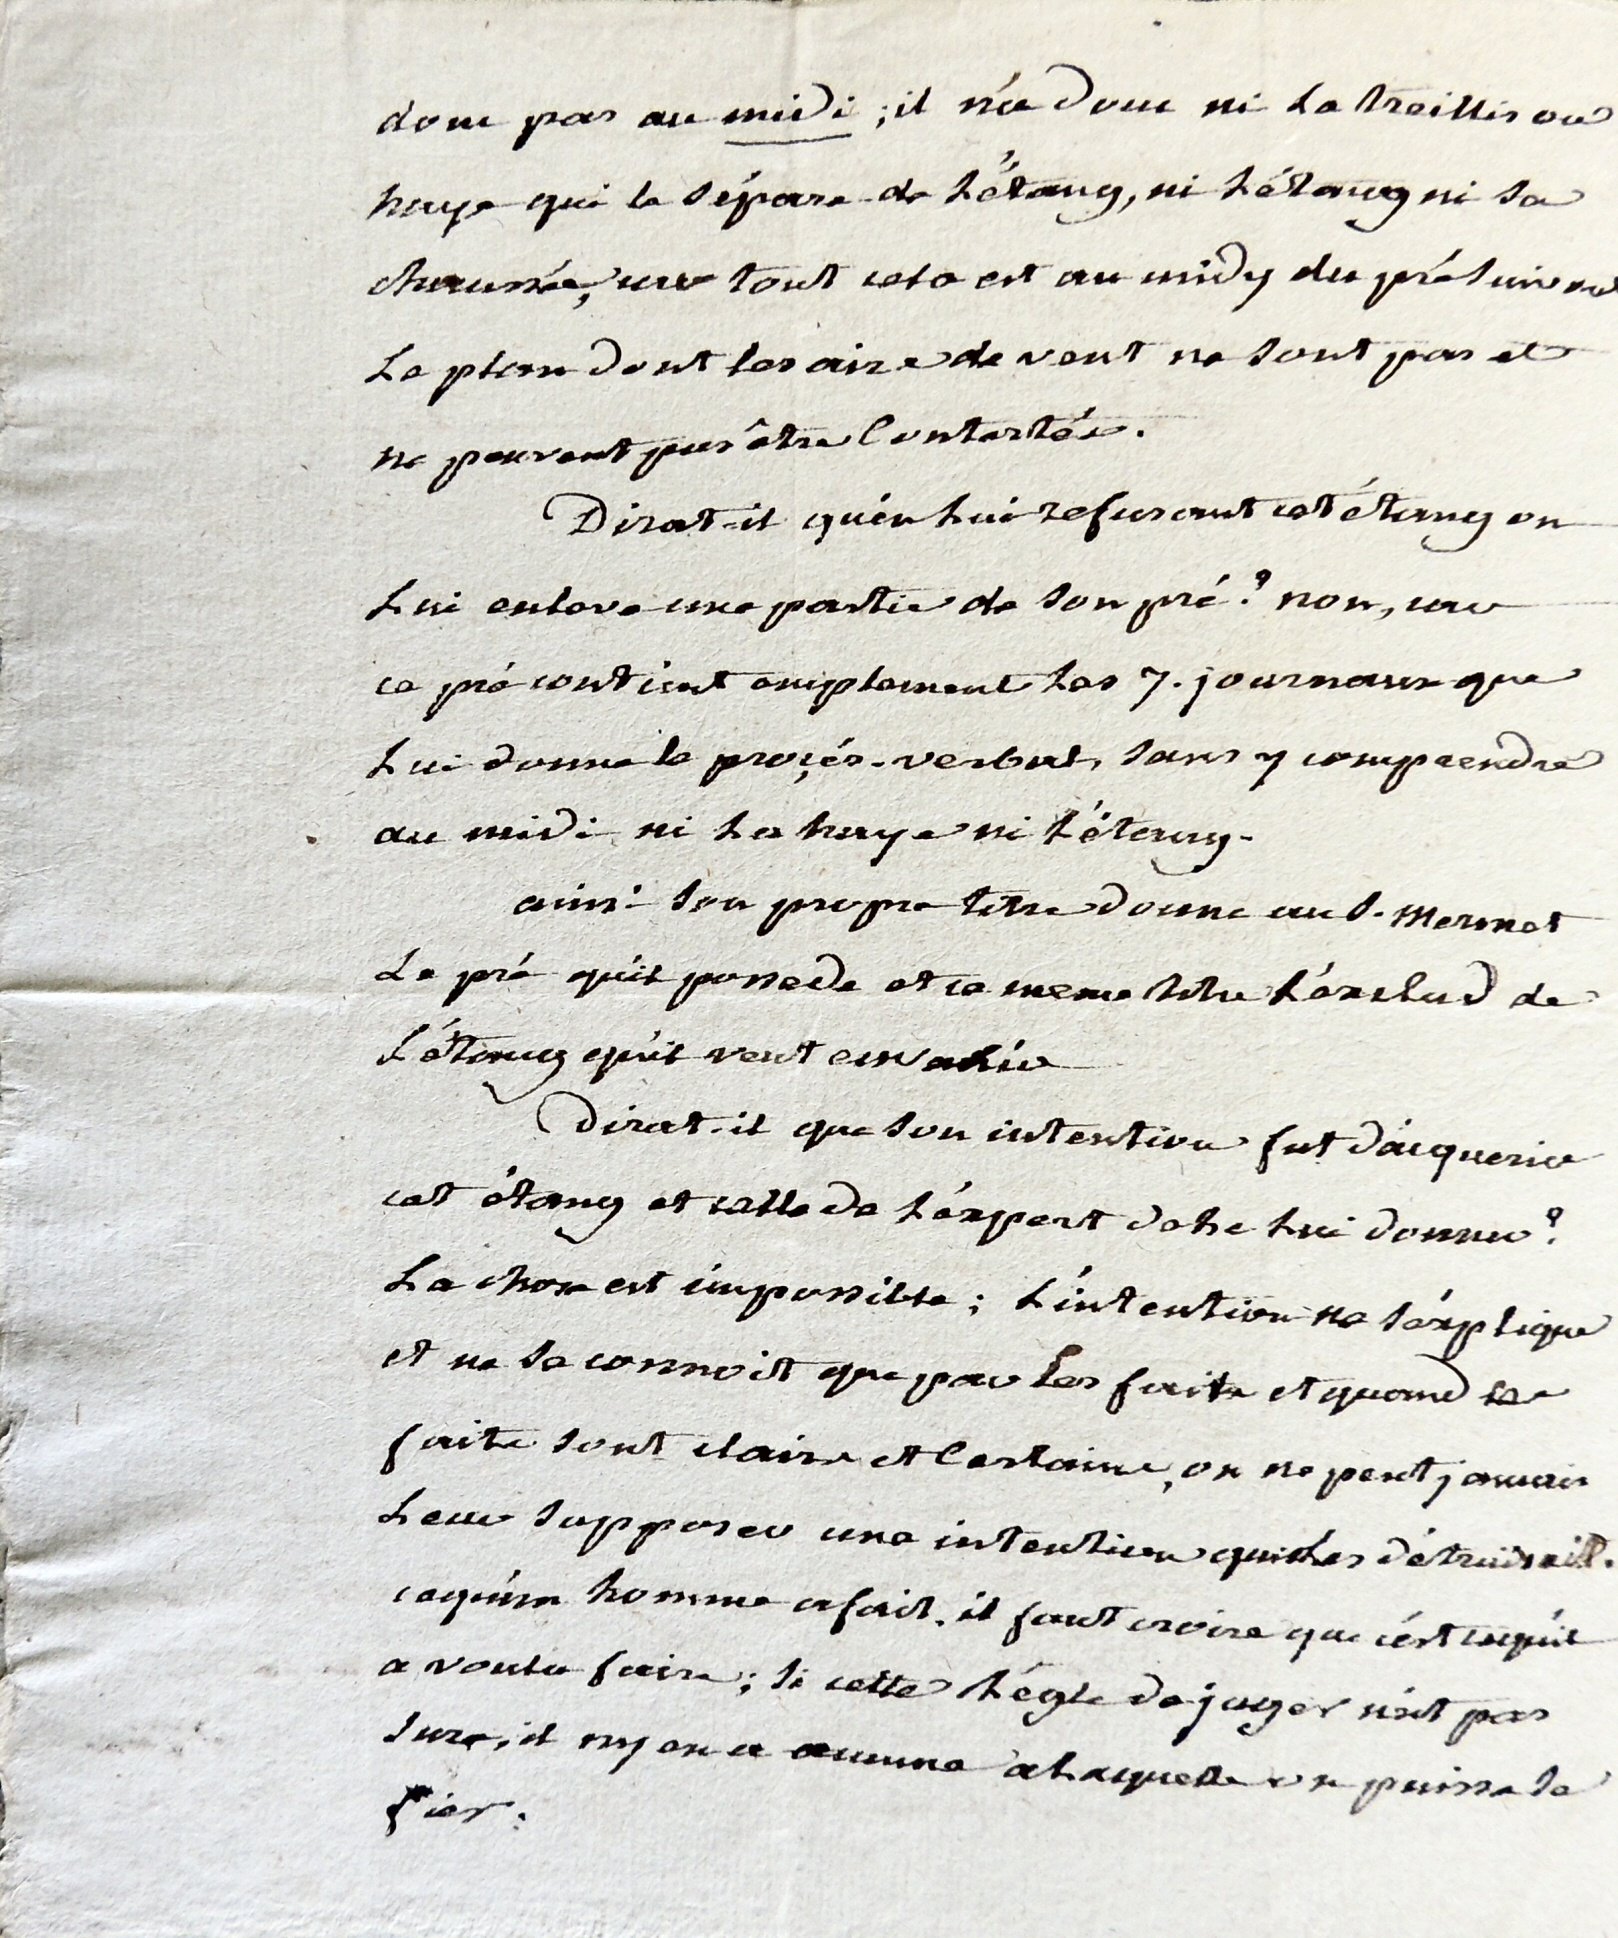 donc pas au midi ; il n'a donc ni la treillis ou
haye qui le sépare de l'étang, ni l'étang ni sa
chaussée, car tout cela est au midy du pré suivant
le plan dont les aire de vent ne sont pas et
ne peuvent pas être Contestée.
Dirat-il qu'en lui refusant cet étang on
lui enleve une partie de son pré ? non, car
ce pré contient amplement les 7. journaux que
lui donne le proçés-verbal, sans y comprendre
au midi ni la haye ni l'étang.
ainsi son propre titre donne au S. Mermet
le pré qu'il possede et ce meme titre l'éxclud de
l'étang qu'il veut envahir
Dirat-il que son intention fut d'acquerir
cet étang et celle de l'éxpert de le lui donner ?
la chose est impossible ; l'intention ne s'éxplique
et ne se connoit que par les faits et quand les
faits sont claire et Certaine, on ne peut jamais
leur supposer une intention qui les détruirait.
ce qu'un homme a fait, il faut croire que c'ést ce qu'il
a voulu faire ; si cette régle de juger n'est pas
sure, il n'y en a aucune a laquelle on puisse se
fier.